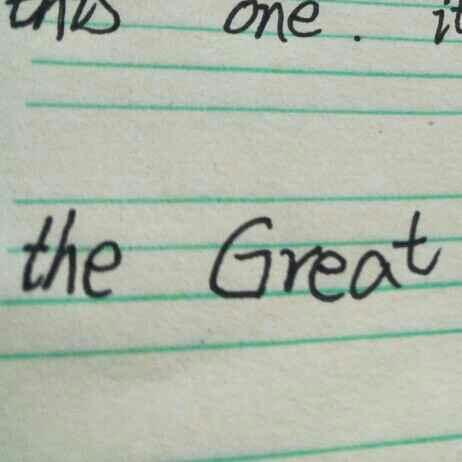 this one. it
the Great